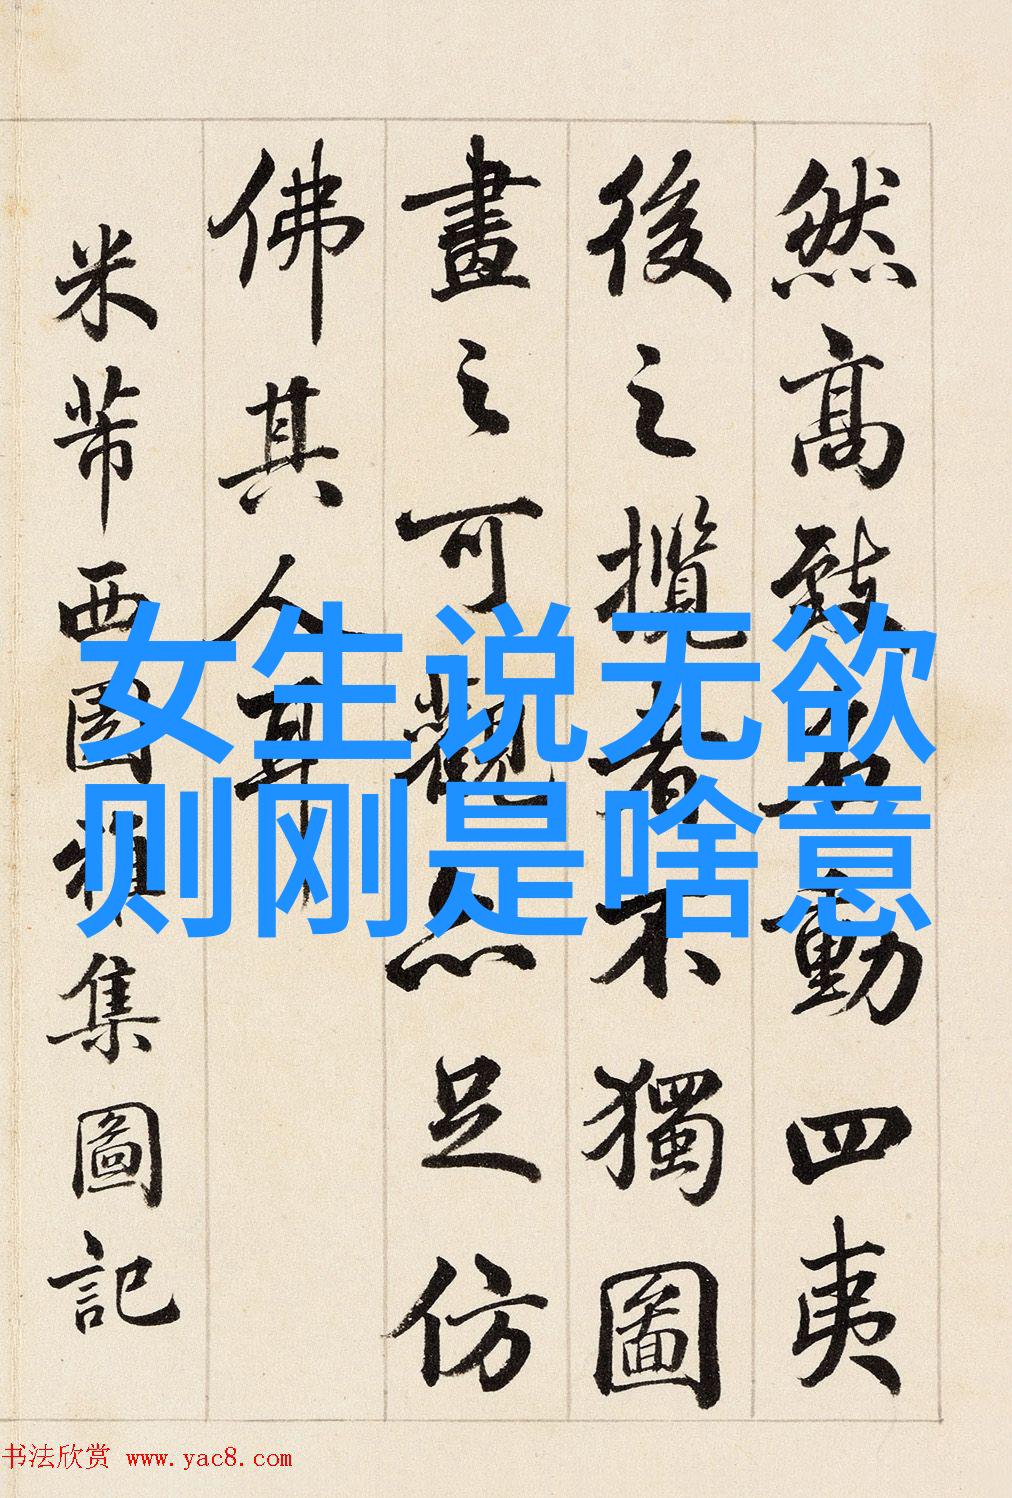 然高致名動四夷
後之攬者不獨圖
畫之可觀亦足仿
佛其人耳
米芾西園雅集圖記
女生说无欲
则刚是啥意
书法欣赏 www.yac8.com